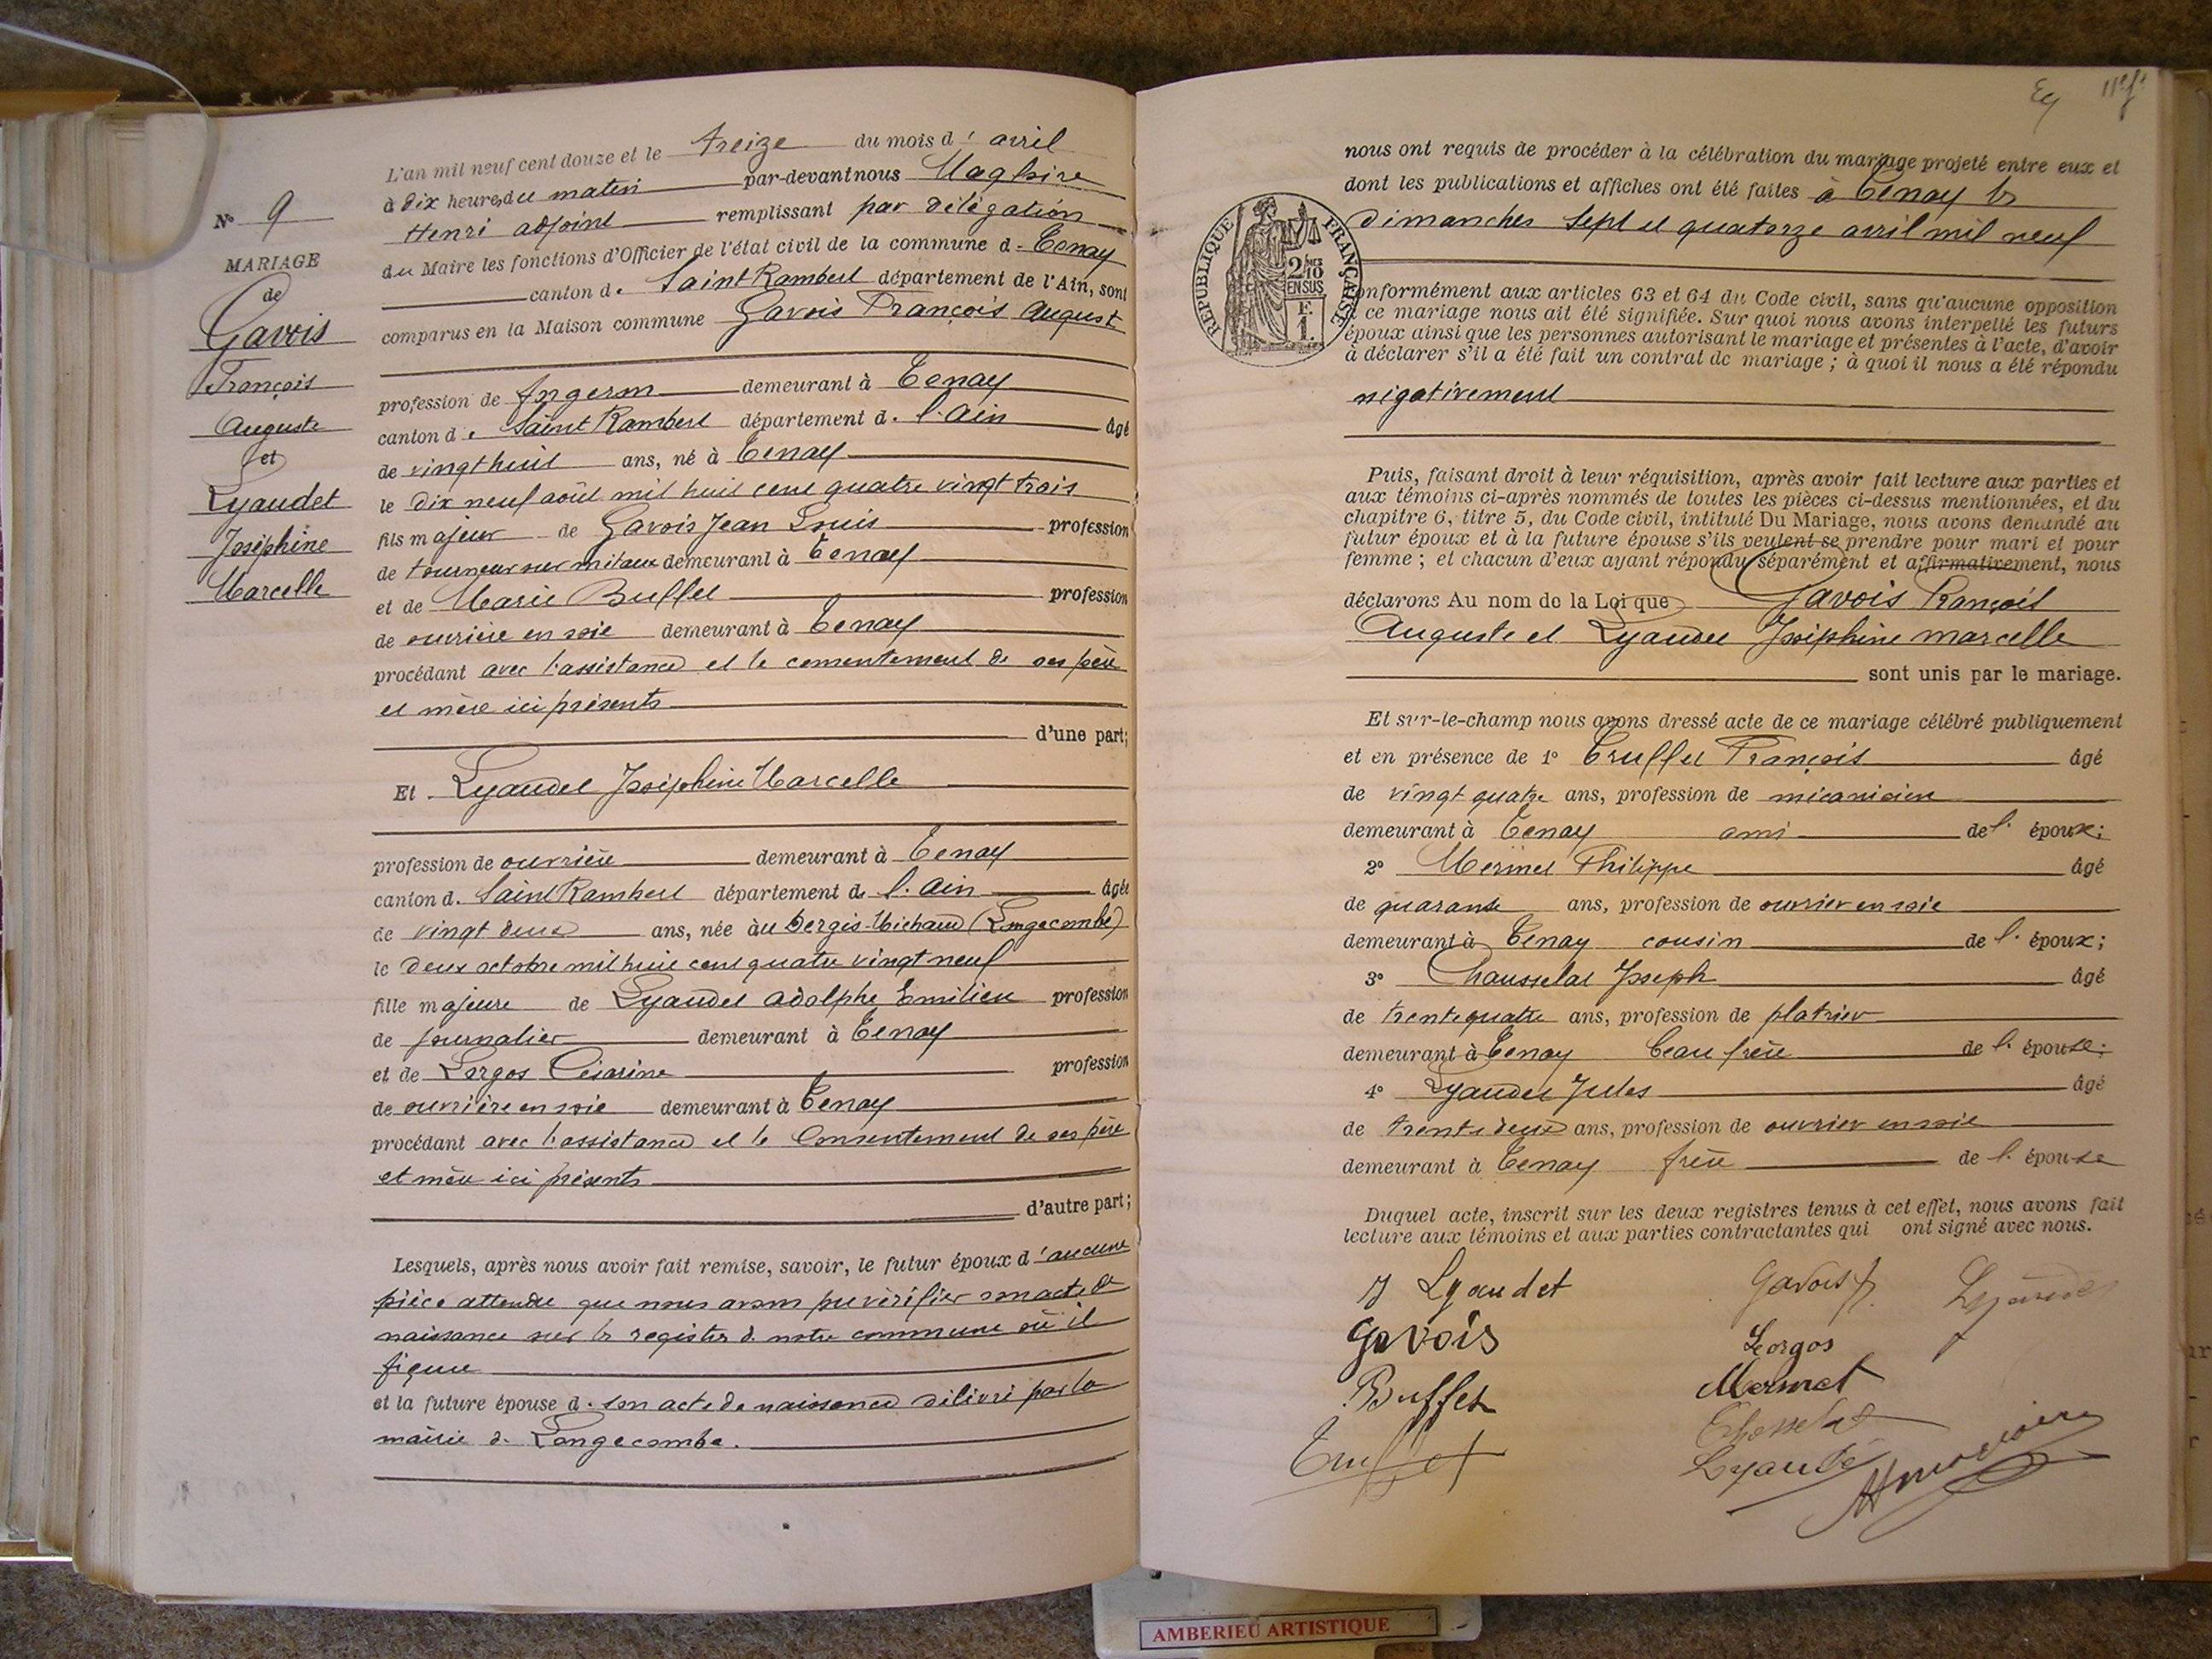 L'an mil neuf cent douze et le treize du mois d' avril
à dix heures du matin par-devant nous Magloire
Henri adjoint remplissant par délégation
du Maire les fonctions d'Officier de l'état civil de la commune d. Tenay
canton d. Saint Rambert département de l'Ain, sont
comparus en la Maison commune Gavois François August
N° 9
MARIAGE
de
Gavois
François
Auguste
et
Lyaudet
Joséphine
Marcelle
profession de demeurant à Tenay
canton d. Saint Rambert département d. l'Ain âgé
de vingt huit ans, né à Tenay
le dix neuf août mil huit cent quatre vingt trois
fils majeur de Gavois Jean Louis profession
de tourneur sur métaux demeurant à Tenay
et de Marie Buffet profession
de ouvrière en soie demeurant à Tenay
procédant avec l'assistance et le consentement de ses père
et mère ici présents
d'une part;
Et Lyaudet Joséphine Marcelle
profession de ouvrière demeurant à Tenay
canton d. Saint Rambert département d. l'Ain âgée
de vingt deux ans, née au Michaud (Longecombe)
le deux octobre mil huit cent quatre vingt neuf
fille majeure de Lyaudet Adolphe Emilien profession
de journalier demeurant à Tenay
et de Lergos Césarine profession
de ouvrière en soie demeurant à Tenay
procédant avec l'assistance et le Consentement de ses père
et mère ici présents
d'autre part;
Lesquels, après nous avoir fait remise, savoir, le futur époux d'aucune
pièce attendu que nous avons pu vérifier son acte de
naissance sur les registres de notre commune où il
figure
et la future épouse d. son acte de naissance délivré par la
mairie de Longecombe.
nous ont requis de procéder à la célébration du mariage projeté entre eux et
dont les publications et affiches ont été faites à Tenay les
dimanches sept et quatorze avril mil neuf
RÉPUBLIQUE FRANÇAISE
2/10 EN SUS
F. 1.
conformément aux articles 63 et 64 du Code civil, sans qu'aucune opposition
à ce mariage nous ait été signifiée. Sur quoi nous avons interpellé les futurs
époux ainsi que les personnes autorisant le mariage et présentes à l'acte, d'avoir
à déclarer s'il a été fait un contrat de mariage ; à quoi il nous a été répondu
négativement
Puis, faisant droit à leur réquisition, après avoir fait lecture aux parties et
aux témoins ci-après nommés de toutes les pièces ci-dessus mentionnées, et du
chapitre 6, titre 5, du Code civil, intitulé Du Mariage, nous avons demandé au
futur époux et à la future épouse s'ils veulent se prendre pour mari et pour
femme ; et chacun d'eux ayant répondu séparément et affirmativement, nous
déclarons Au nom de la Loi que Gavois François
Auguste et Lyaudet Joséphine Marcelle
sont unis par le mariage.
Et sur-le-champ nous avons dressé acte de ce mariage célébré publiquement
et en présence de 1° Truffet François âgé
de vingt quatre ans, profession de mécanicien
demeurant à Tenay ami de l. époux;
2° Mermet Philippe âgé
de quarante ans, profession de ouvrier en soie
demeurant à Tenay cousin de l. époux;
3° Chausselat Joseph âgé
de trente quatre ans, profession de platrier
demeurant à Tenay beau frère de l. épouse;
4° Lyaudet Jules âgé
de trente deux ans, profession de ouvrier en soie
demeurant à Tenay frère de l. épouse
Duquel acte, inscrit sur les deux registres tenus à cet effet, nous avons fait
lecture aux témoins et aux parties contractantes qui ont signé avec nous.
J Lyaudet Gavois f. Lyaudet
Gavois Lergos
Buffet Mermet
Truffet
Lyaudet
AMBERIEU ARTISTIQUE